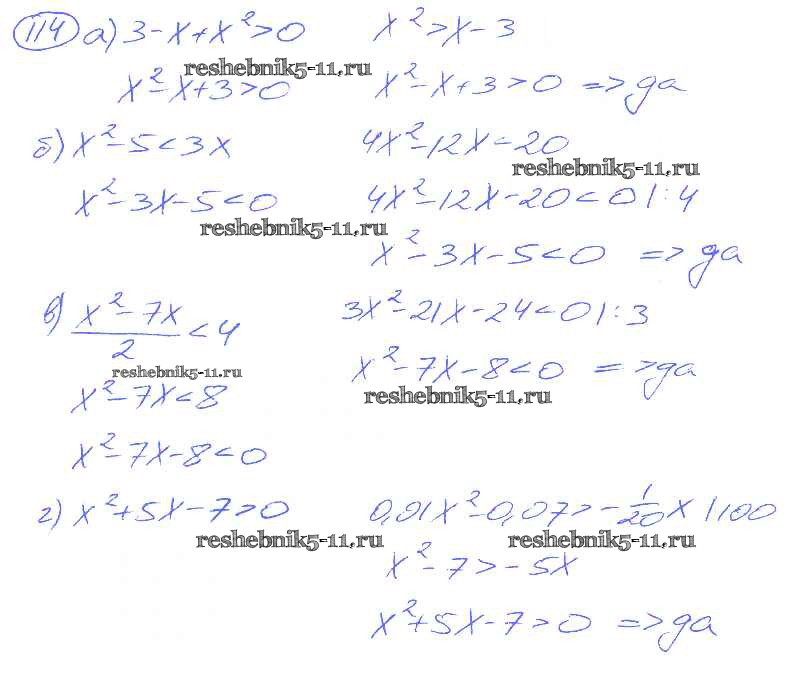 114 а) 3-x+x²>0 x²>x-3
reshebnik5-11.ru
x²-x+3>0 x²-x+3>0 => да
б) x²-5<3x 4x²-12x<20
reshebnik5-11.ru
x²-3x-5<0 4x²-12x-20<0 |:4
reshebnik5-11.ru
x²-3x-5<0 => да
в) (x²-7x)/2<4 3x²-21x-24<0 |:3
reshebnik5-11.ru
x²-7x-8<0 => да
x²-7x<8
reshebnik5-11.ru
x²-7x-8<0
г) x²+5x-7>0 0,01x²-0,07>-1/20x |100
reshebnik5-11.ru reshebnik5-11.ru
x²-7>-5x
x²+5x-7>0 => да